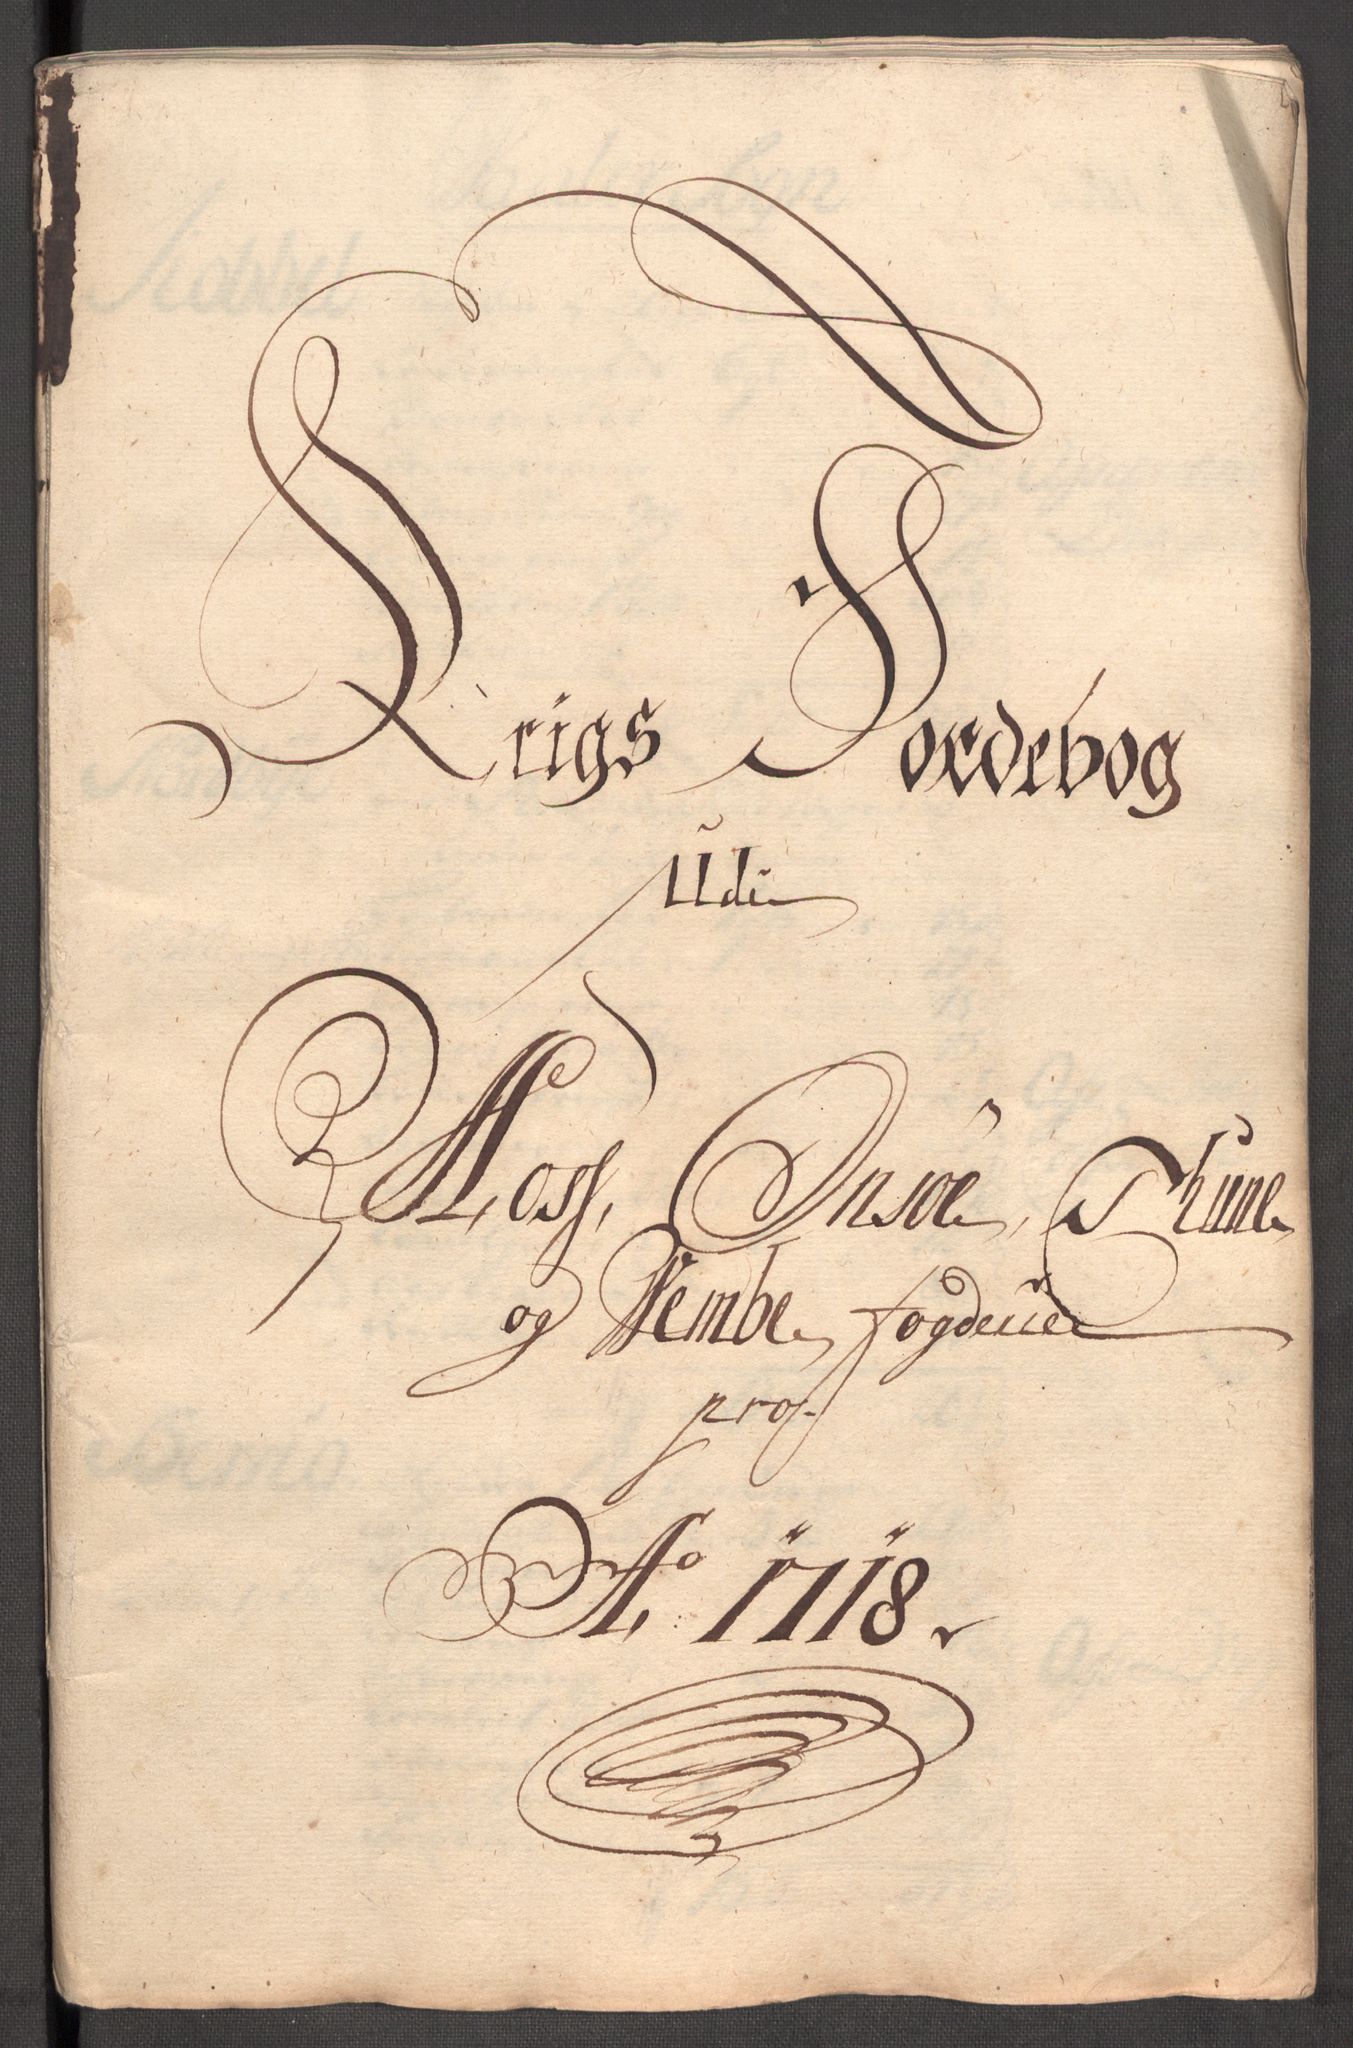 Krigs Jordebog
Udi
Moss, Onsøe, Thune
og Wembe fogderier
pro
Ao 1718.